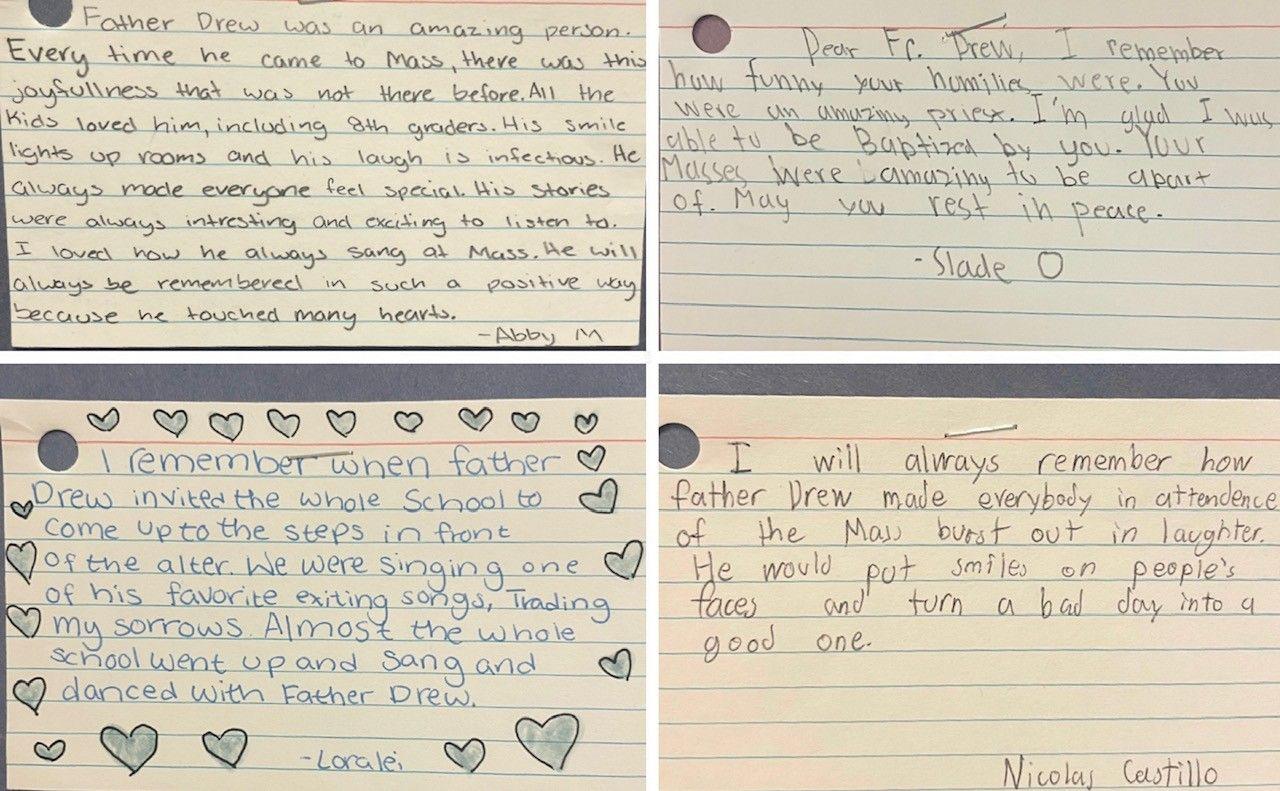 Father Drew was an amazing person.
Every time he came to Mass, there was this
joyfullness that was not there before. All the
Kids loved him, including 8th graders. His smile
lights up rooms and his laugh is infectious. He
always made everyone feel special. His stories
were always intresting and exciting to listen to.
I loved how he always sang at Mass. He will
always be remembered in such a positive way
because he touched many hearts.
-Abby M
Dear Fr. Drew, I remember
how funny your homilies were. You
were an amazing priest. I'm glad I was
able to be Baptized by you. Your
Masses were amazing to be apart
of. May you rest in peace.
-Slade O
I remember when father
Drew invited the whole School to
come up to the steps in front
of the alter. We were singing one
of his favorite exiting songs, Trading
my sorrows. Almost the whole
school went up and sang and
danced with Father Drew.
-Loralei
I will always remember how
father Drew made everybody in attendence
of the Mass burst out in laughter.
He would put smiles on people's
faces and turn a bad day into a
good one.
Nicolas Castillo